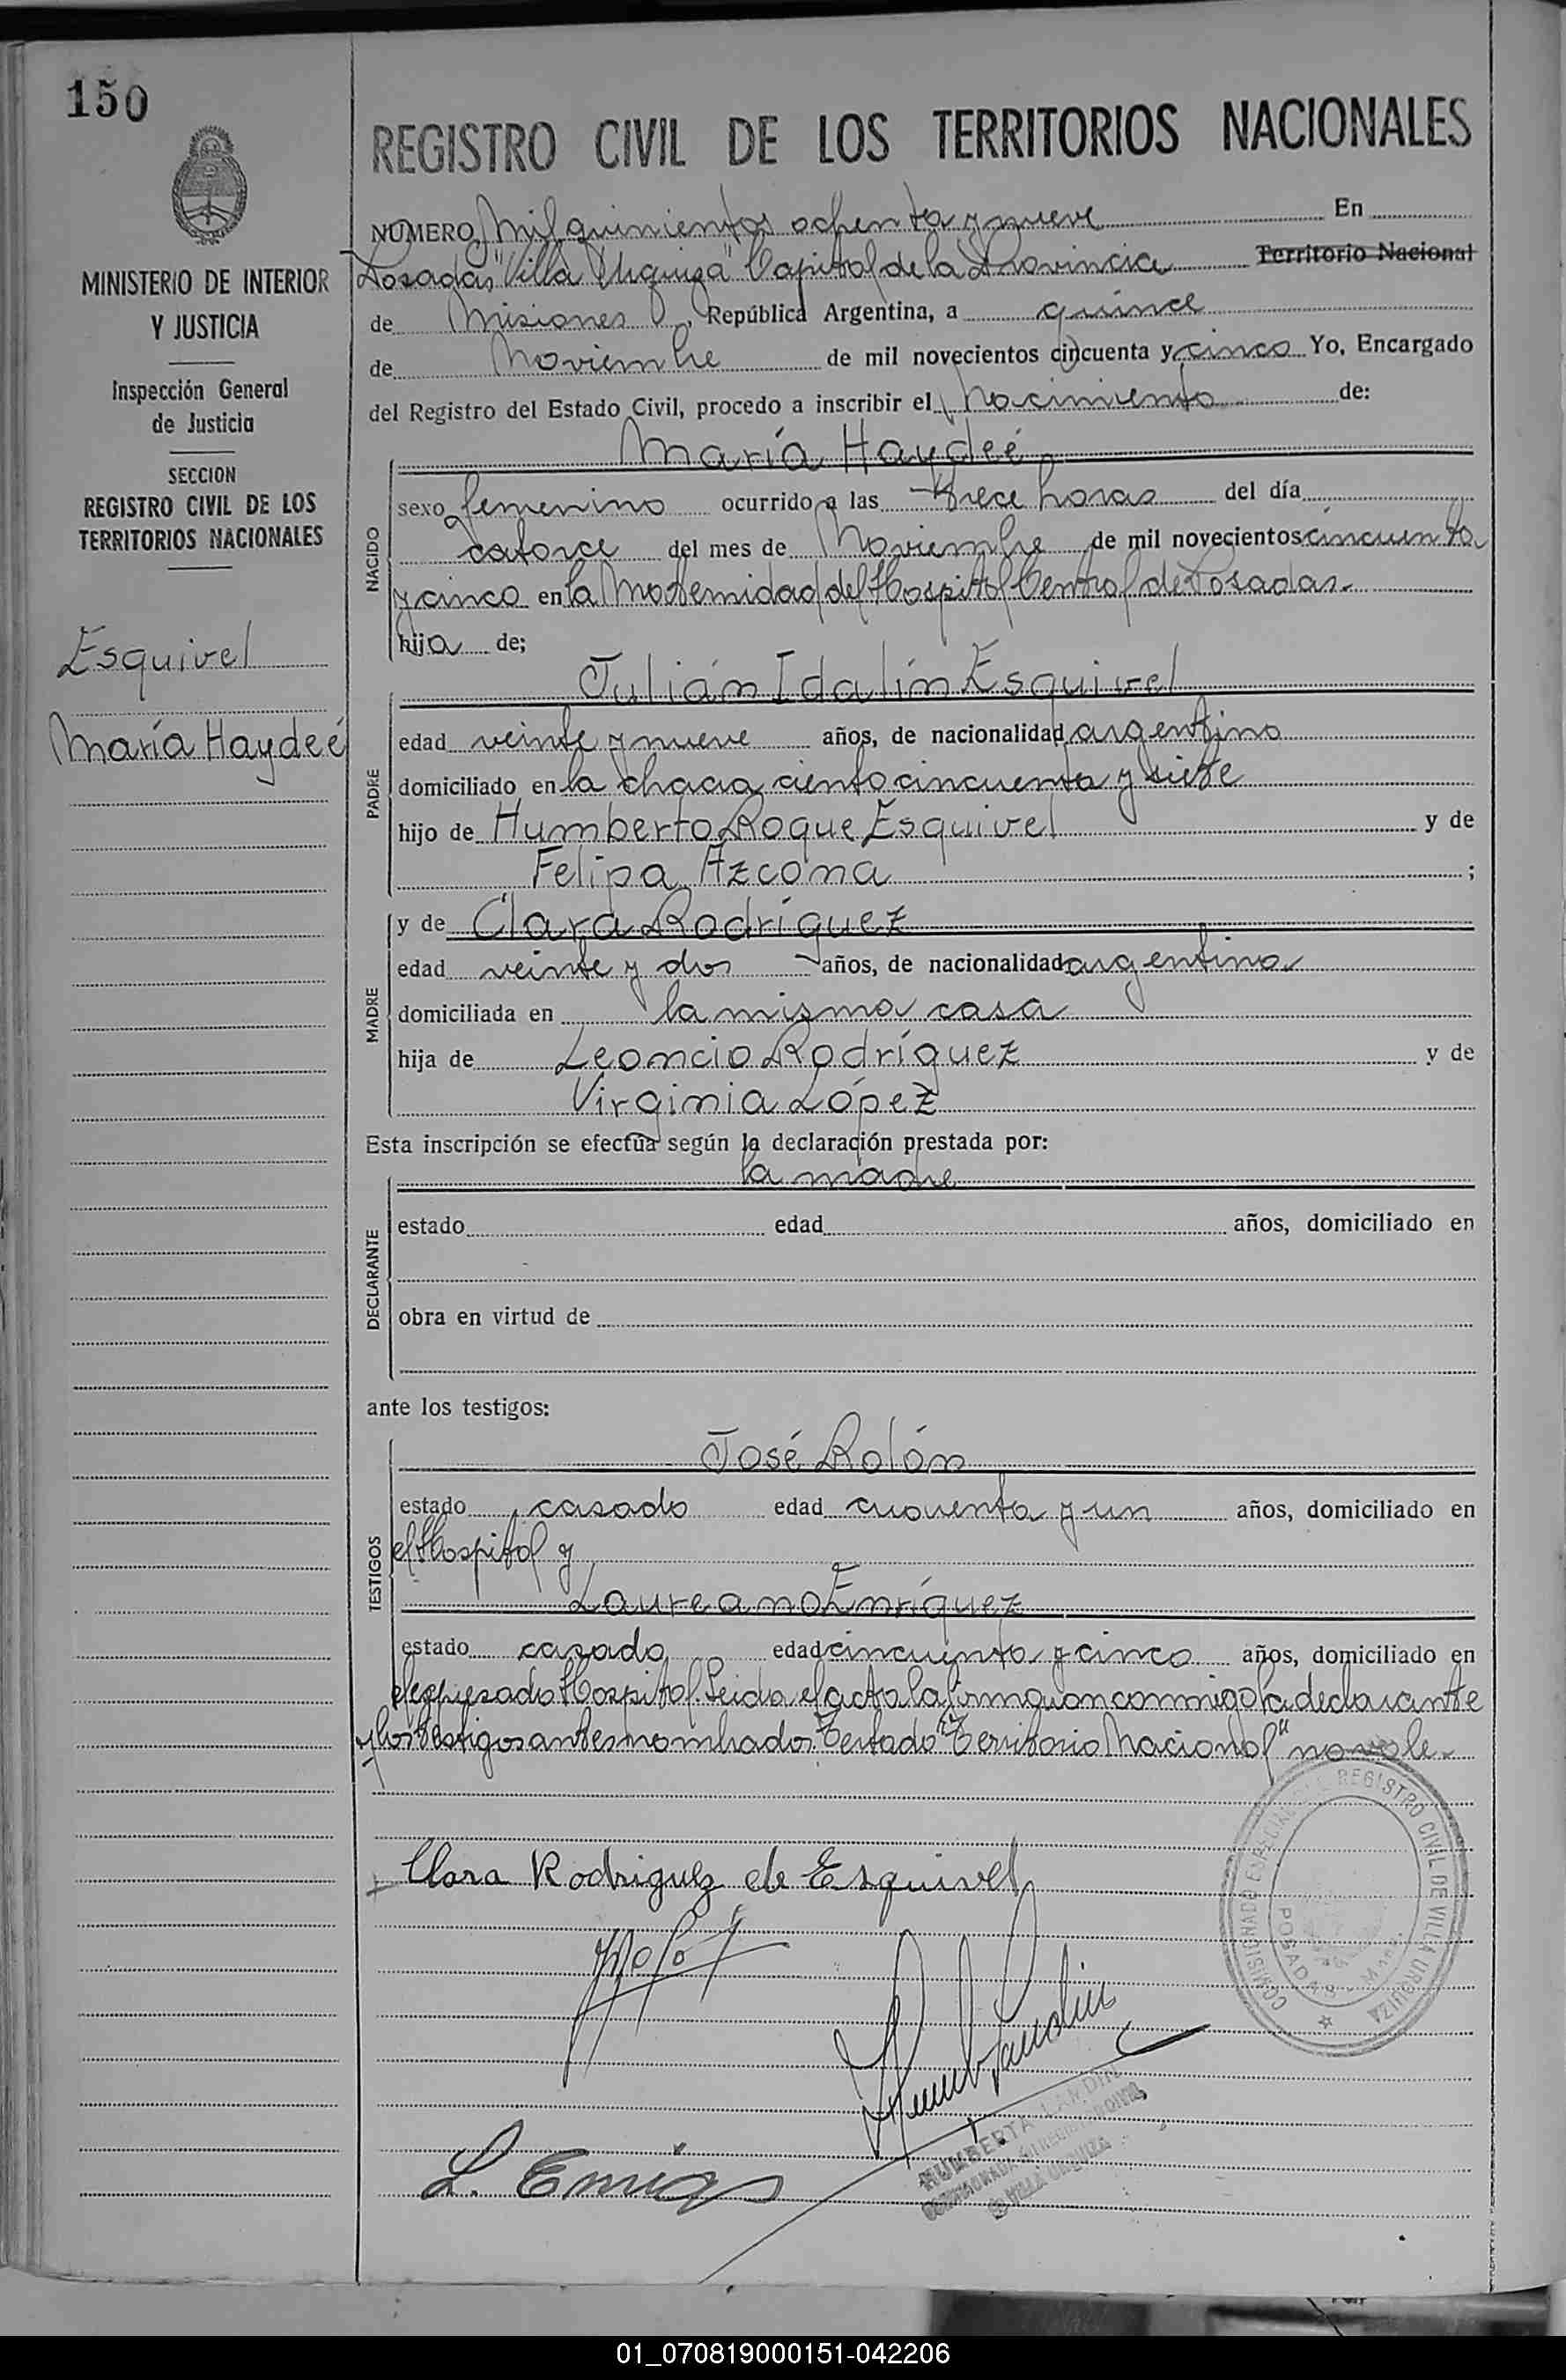 150
REGISTRO CIVIL DE LOS TERRITORIOS NACIONALES
MINISTERIO DE INTERIOR
Y JUSTICIA
Inspección General
de Justicia
SECCION
REGISTRO CIVIL DE LOS
TERRITORIOS NACIONALES
Esquivel
María Haydeé
NUMERO Mil quinientos ochenta y nueve En
Posadas, "Villa Urquiza" Capital de la Provincia Territorio Nacional
de Misiones, República Argentina, a quince
de Noviembre de mil novecientos cincuenta y cinco Yo, Encargado
del Registro del Estado Civil, procedo a inscribir el Nacimiento de:
NACIDO
María Haydeé
sexo femenino ocurrido a las trece horas del día
catorce del mes de Noviembre de mil novecientos cincuenta
y cinco en la Maternidad del Hospital Central de Posadas.
hija de;
PADRE
Julián Idalín Esquivel
edad veinte y nueve años, de nacionalidad argentino
domiciliado en la chacra ciento cincuenta y siete
hijo de Humberto Roque Esquivel y de
Felipa Azcona ;
MADRE
y de Clara Rodríguez
edad veinte y dos años, de nacionalidad argentina
domiciliada en la misma casa
hija de Leoncio Rodríguez y de
Virginia López
Esta inscripción se efectúa según la declaración prestada por:
DECLARANTE
la madre
estado edad años, domiciliado en
obra en virtud de
ante los testigos:
TESTIGOS
José Rolón
estado casado edad cuarenta y un años, domiciliado en
el Hospital y
Laureano Enríquez
estado casado edad cincuenta y cinco años, domiciliado en
el expresado Hospital. Leida el acta la firman conmigo la declarante
y los testigos antes nombrados. Testado "Territorio Nacional" no vale.
Clara Rodriguez de Esquivel
COMISIONADO ESPECIAL REGISTRO CIVIL DE VILLA URQUIZA
POSADAS
HUMBERTA LANDIN
VILLA URQUIZA
01_070819000151-042206